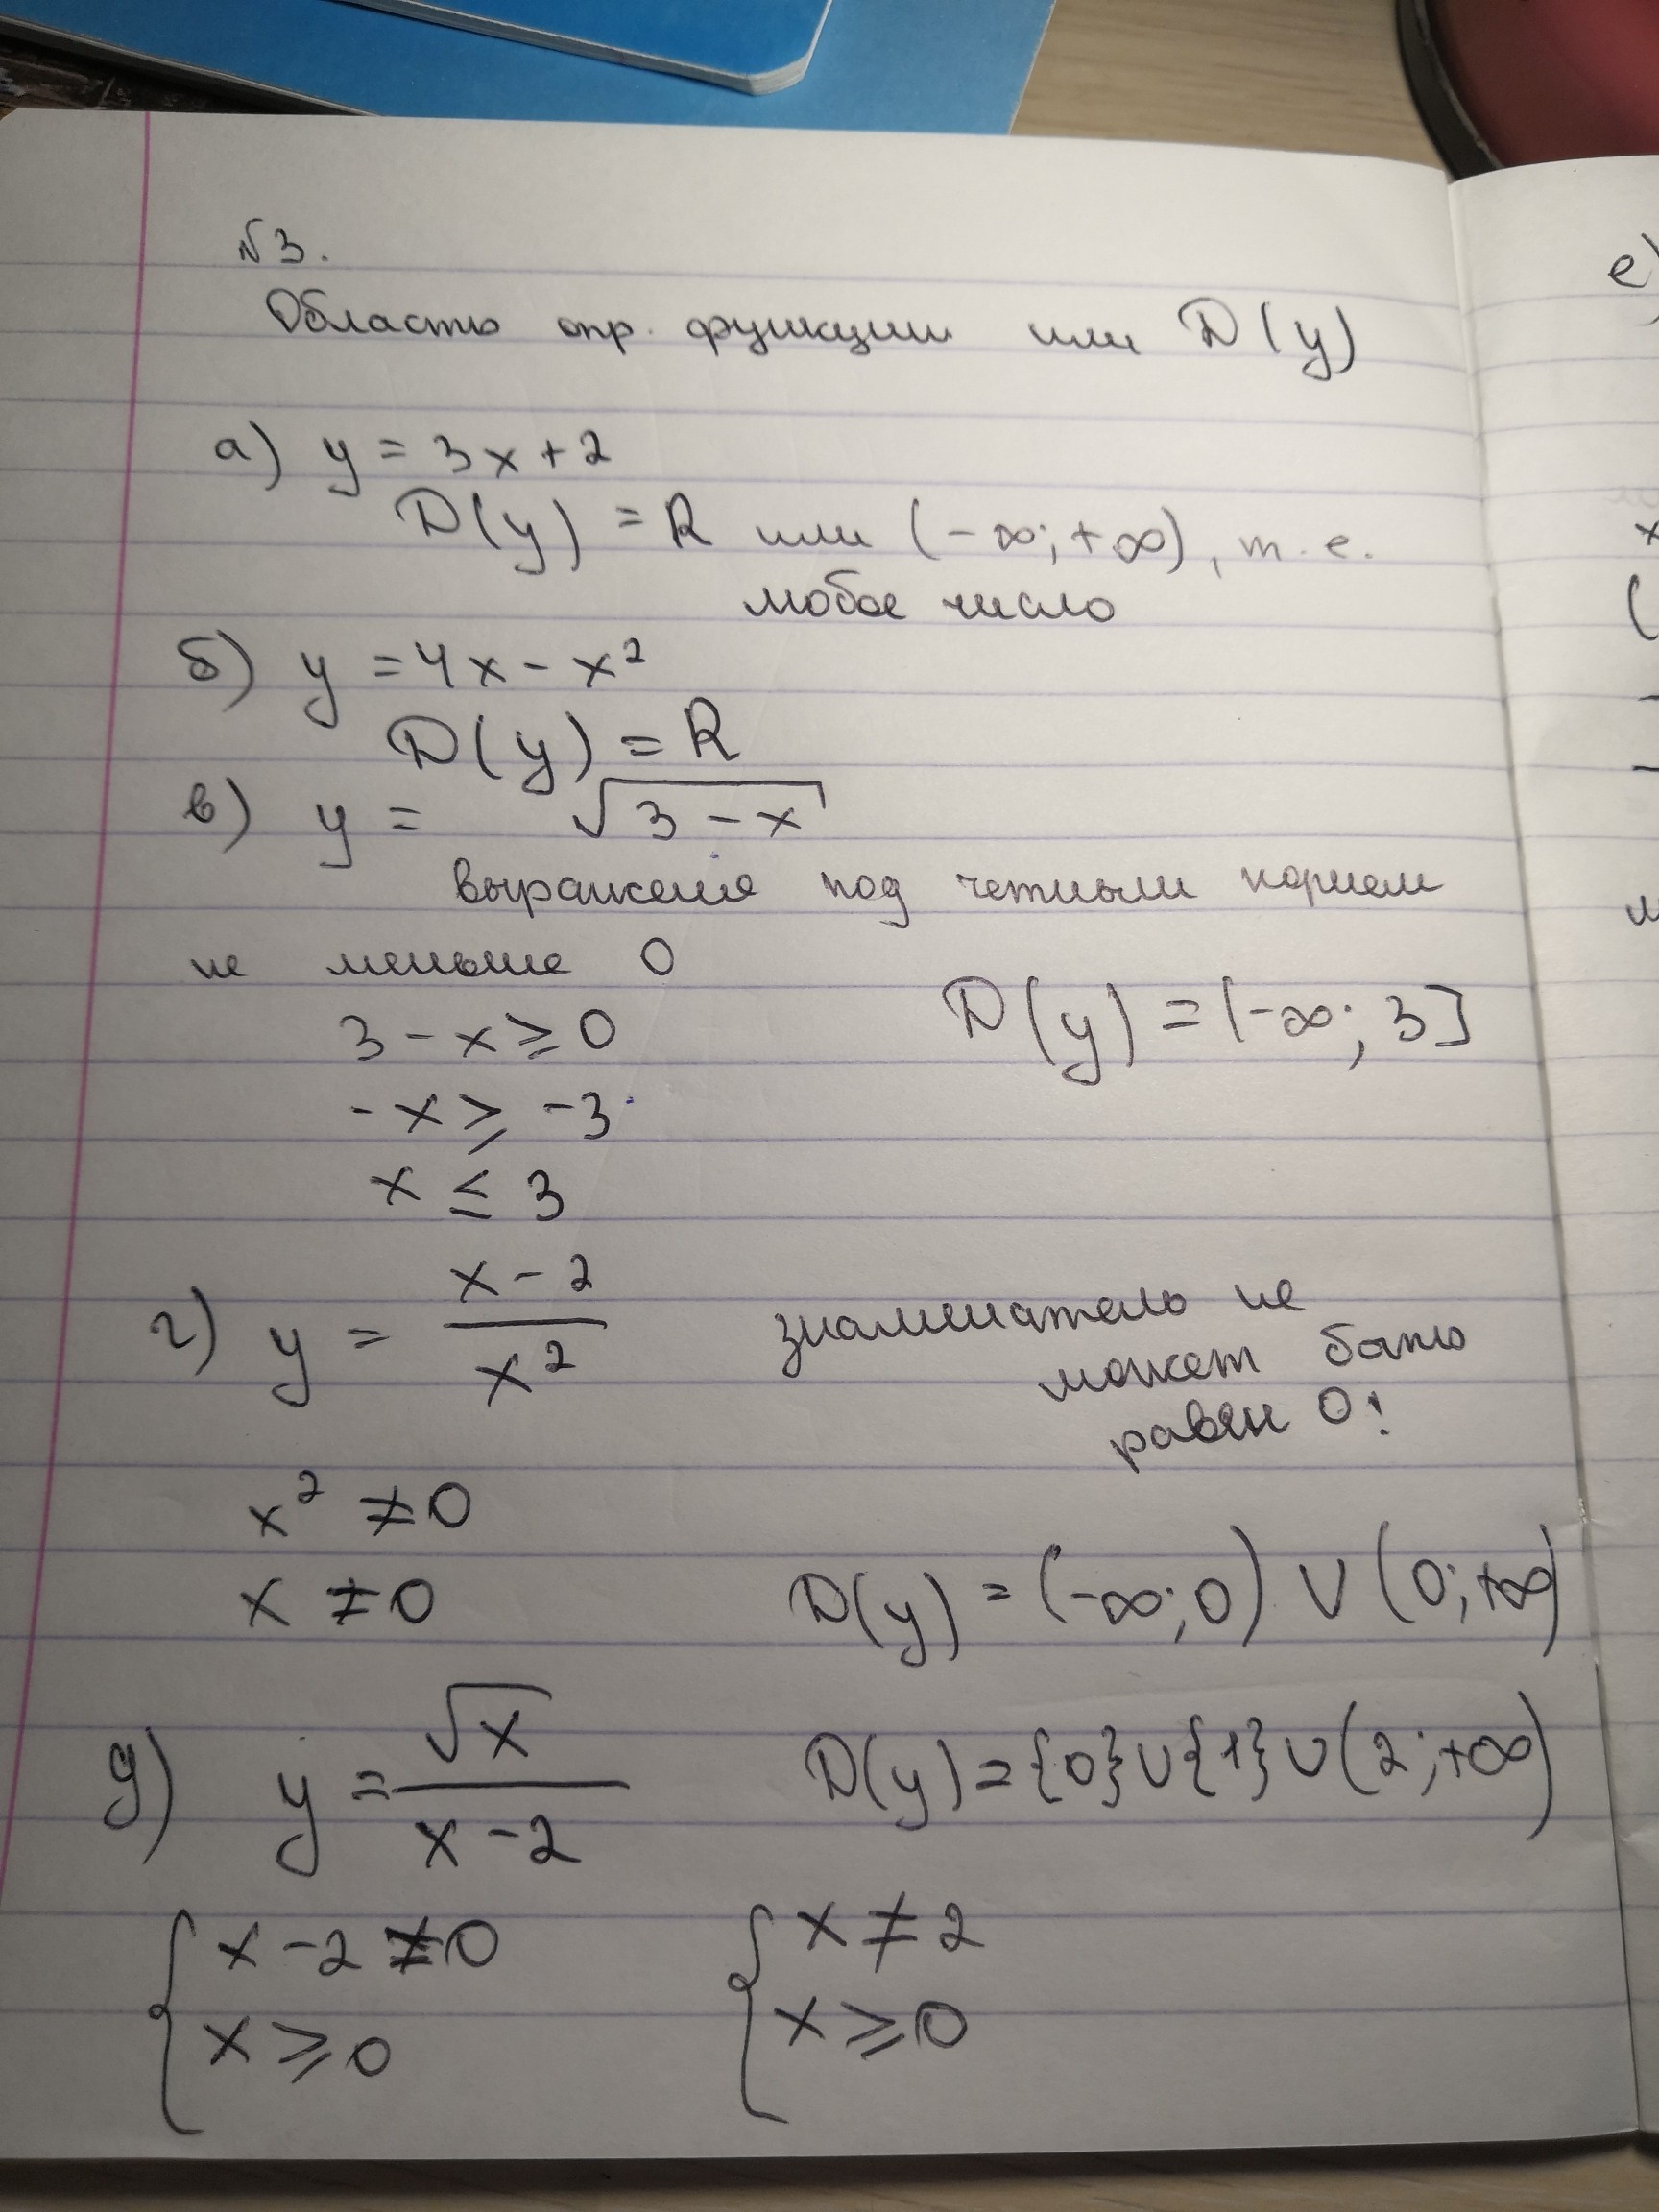 №3.
Область опр. функции или D(y)
а) y = 3x + 2
D(y) = R или (-∞; +∞), т.е.
любое число
б) y = 4x - x²
D(y) = R
в) y = √(3 - x)
выражения под четным корнем
не меньше 0
3 - x ≥ 0
D(y) = (-∞; 3]
-x ≥ -3
x ≤ 3
г) y = (x - 2)/x²
знаменатель не
может быть
равен 0!
x² ≠ 0
x ≠ 0
D(y) = (-∞; 0) ∪ (0; +∞)
д) y = √x/(x - 2)
D(y) = {0} ∪ {1} ∪ (2; +∞)
{ x - 2 ≠ 0
x ≥ 0
{ x ≠ 2
x ≥ 0
е)
x
(